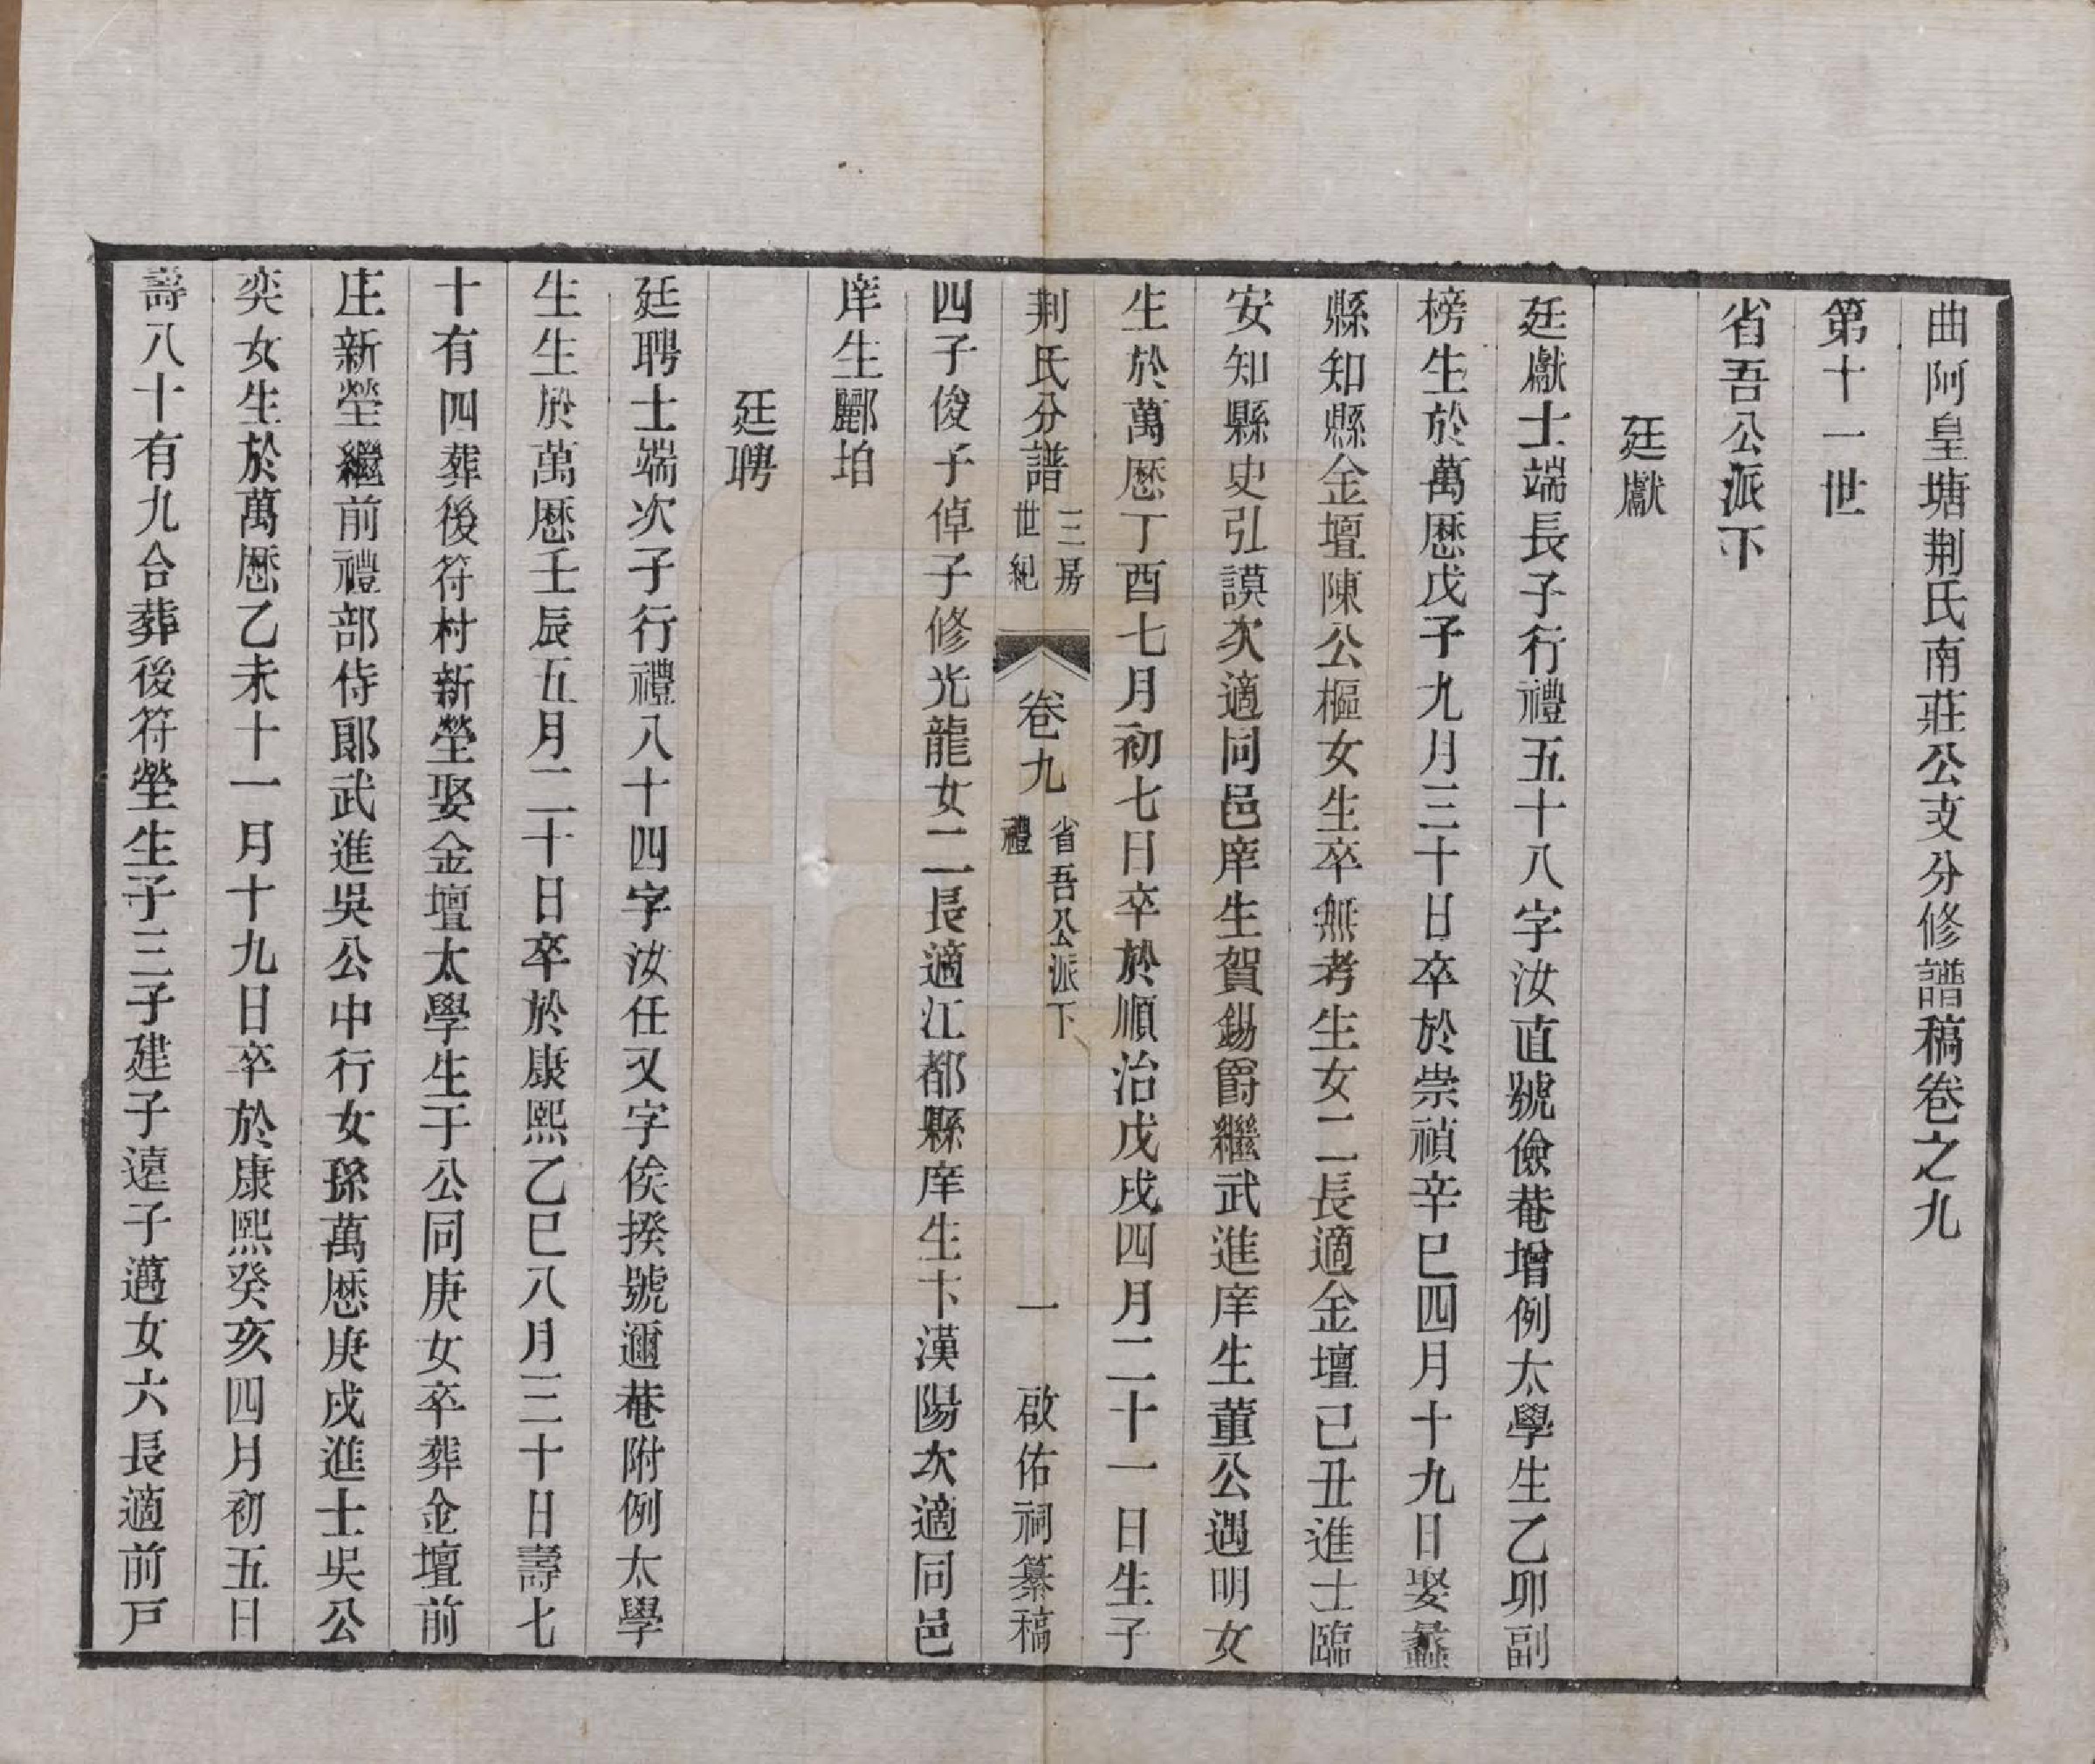 曲阿皇塘荆氏南莊公支分修譜稿卷之九
第十一世
省吾公派下
廷獻
廷獻士端長子行禮五十八字汝直號儉菴增例太學生乙卯副
榜生於萬歷戊子九月三十日卒於崇禎辛巳四月十九日娶蠡
縣知縣金壇陳公樞女生卒無考生女二長適金壇己丑進士臨
安知縣史弘謨次適同邑庠生賀錫爵繼武進庠生董公遇明女
生於萬歷丁酉七月初七日卒於順治戊戌四月二十一日生子
荆氏分譜 三房世紀 卷九 省吾公派下禮 一 啟佑祠纂稿
四子俊子倬子修光龍女二長適江都縣庠生卞漢陽次適同邑
庠生酈珀
廷聘
廷聘士端次子行禮八十四字汝任又字俟揆號邇菴附例太學
生生於萬歷壬辰五月二十日卒於康熙乙巳八月三十日壽七
十有四葬後符村新塋娶金壇太學生于公同庚女卒葬金壇前
庄新塋繼前禮部侍郎武進吳公中行女孫萬歷庚戌進士吳公
奕女生於萬歷乙未十一月十九日卒於康熙癸亥四月初五日
壽八十有九合葬後符塋生子三子建子遠子邁女六長適前戸